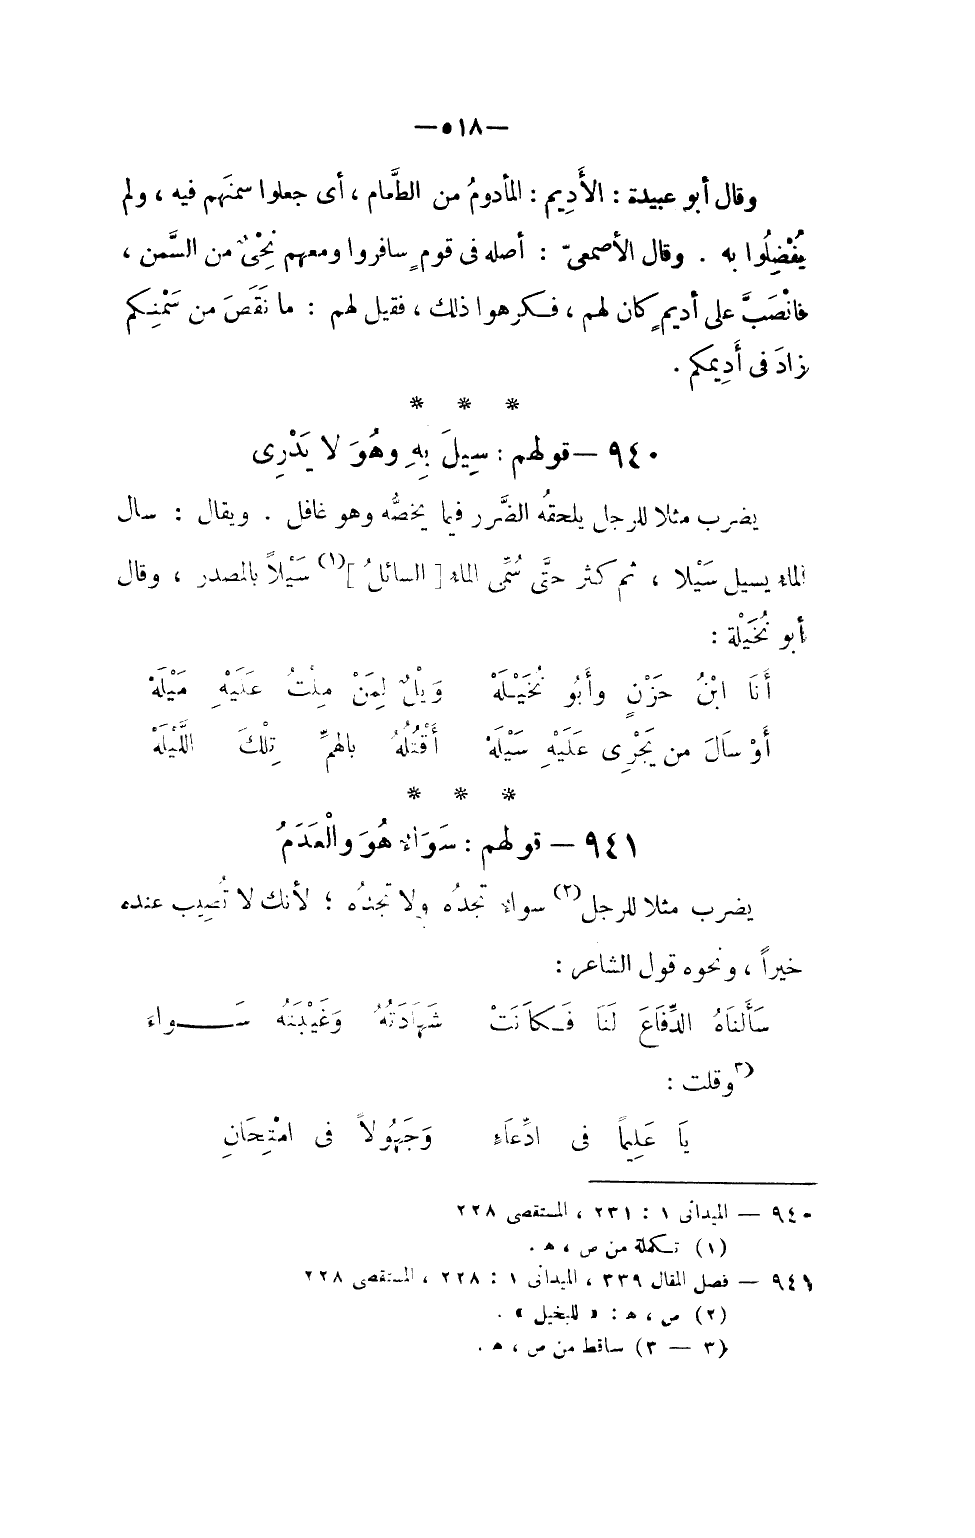 —٥١٨—
وقال أبو عبيدة : الأَدِيم : المأدومُ من الطَّعام ، أى جعلوا سمنَهم فيه ، ولم
يُفْضِلُوا به . وقال الأصمعىّ : أصله فى قومٍ سافروا ومعهم نِحْىٌ من السَّمن ،
فانْصَبَّ على أديمٍ كان لهم ، فكرهوا ذلك ، فقيل لهم : ما نَقَصَ من سَمْنِكم
زادَ فى أَدِيمكم .
* * *
٩٤٠ — قولهم : سِيلَ بِهِ وهُوَ لا يَدْرِى
يضرب مثلا للرجل يلحقهُ الضَّرر فيما يخصُّه وهو غافل . ويقال : سال
الماء يسيل سَيْلا ، ثم كثر حتَّى سُمِّى الماء [ السائلُ ](١) سَيْلاً بالمصدر ، وقال
أبو نُخَيْلة :
أَنَا ابْنُ حَزْنٍ وأَبُو نُخَيْلَهْ وَيْلٌ لِمَنْ مِلْتُ عَلَيْهِ مَيْلَهْ
أَوْ سَالَ من يَجْرِى عَلَيْهِ سَيْلَهْ أَقْتُلُهُ بالهمِّ تِلْكَ اللَّيْلَهْ
* * *
٩٤١ — قولهم : سَوَاءٌ هُوَ والْعَدَمُ
يضرب مثلا للرجل(٢) سواء تجدُه ولا تجدُه ؛ لأنك لا تُصِيب عنده
خيراً ، ونحوه قول الشاعر :
سَأَلنَاهُ الدِّفَاعَ لَنَا فَكاَنَتْ شَهَادَتُهُ وَغَيْبَتُه سَــواءَ
(٣وقلت :
يَا عَلِيماً فى ادِّعَاءِ وَجَهُولاً فى امْتِحَانِ
٩٤٠ — الميدانى ١ : ٢٣١ ، المستقصى ٢٢٨
(١) تكملة من ص ، ه .
٩٤١ — فصل المقال ٣٣٩ ، الميدانى ١ : ٢٢٨ ، المستقصى ٢٢٨
(٢) ص ، ه : « للبخيل » .
(٣ — ٣) ساقط من ص ، ه .